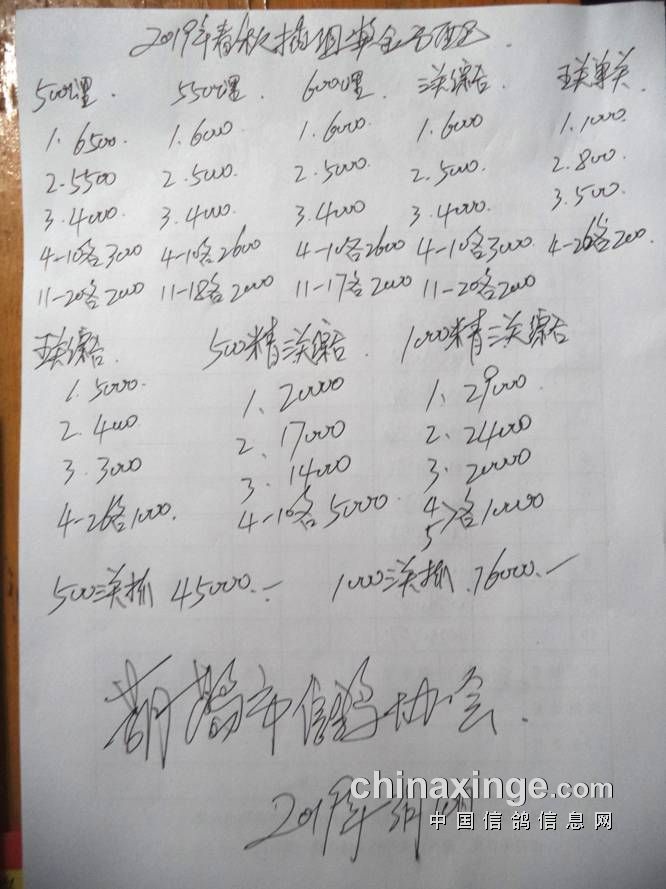 2019年春秋插组奖金分配
500公里. 550公里. 600公里. 三关综合 五关单关
1. 6500. 1. 6000. 1. 6000. 1. 6000 1. 1000.
2. 5500 2. 5000. 2. 5000. 2. 5000. 2. 800.
3. 4000. 3. 4000. 3. 4000 3. 4000. 3. 500.
4-10名3000 4-10名2600 4-10名2600 4-10名3000 4-26名200.
11-20名2000 11-18名2000 11-17名2000 11-20名2000
五关综合. 500精三关综合. 1000精三关综合
1. 5000. 1、20000 1、29000.
2. 4000 2、17000 2、24000
3. 3000 3. 14000 3. 20000
4-26名1000. 4-10名5000. 4 5>名10000
500三关抓 45000.- 1000三关抓 76000.-
葫芦岛市信鸽协会.
2019年
chinaxinge.com
中国信鸽信息网